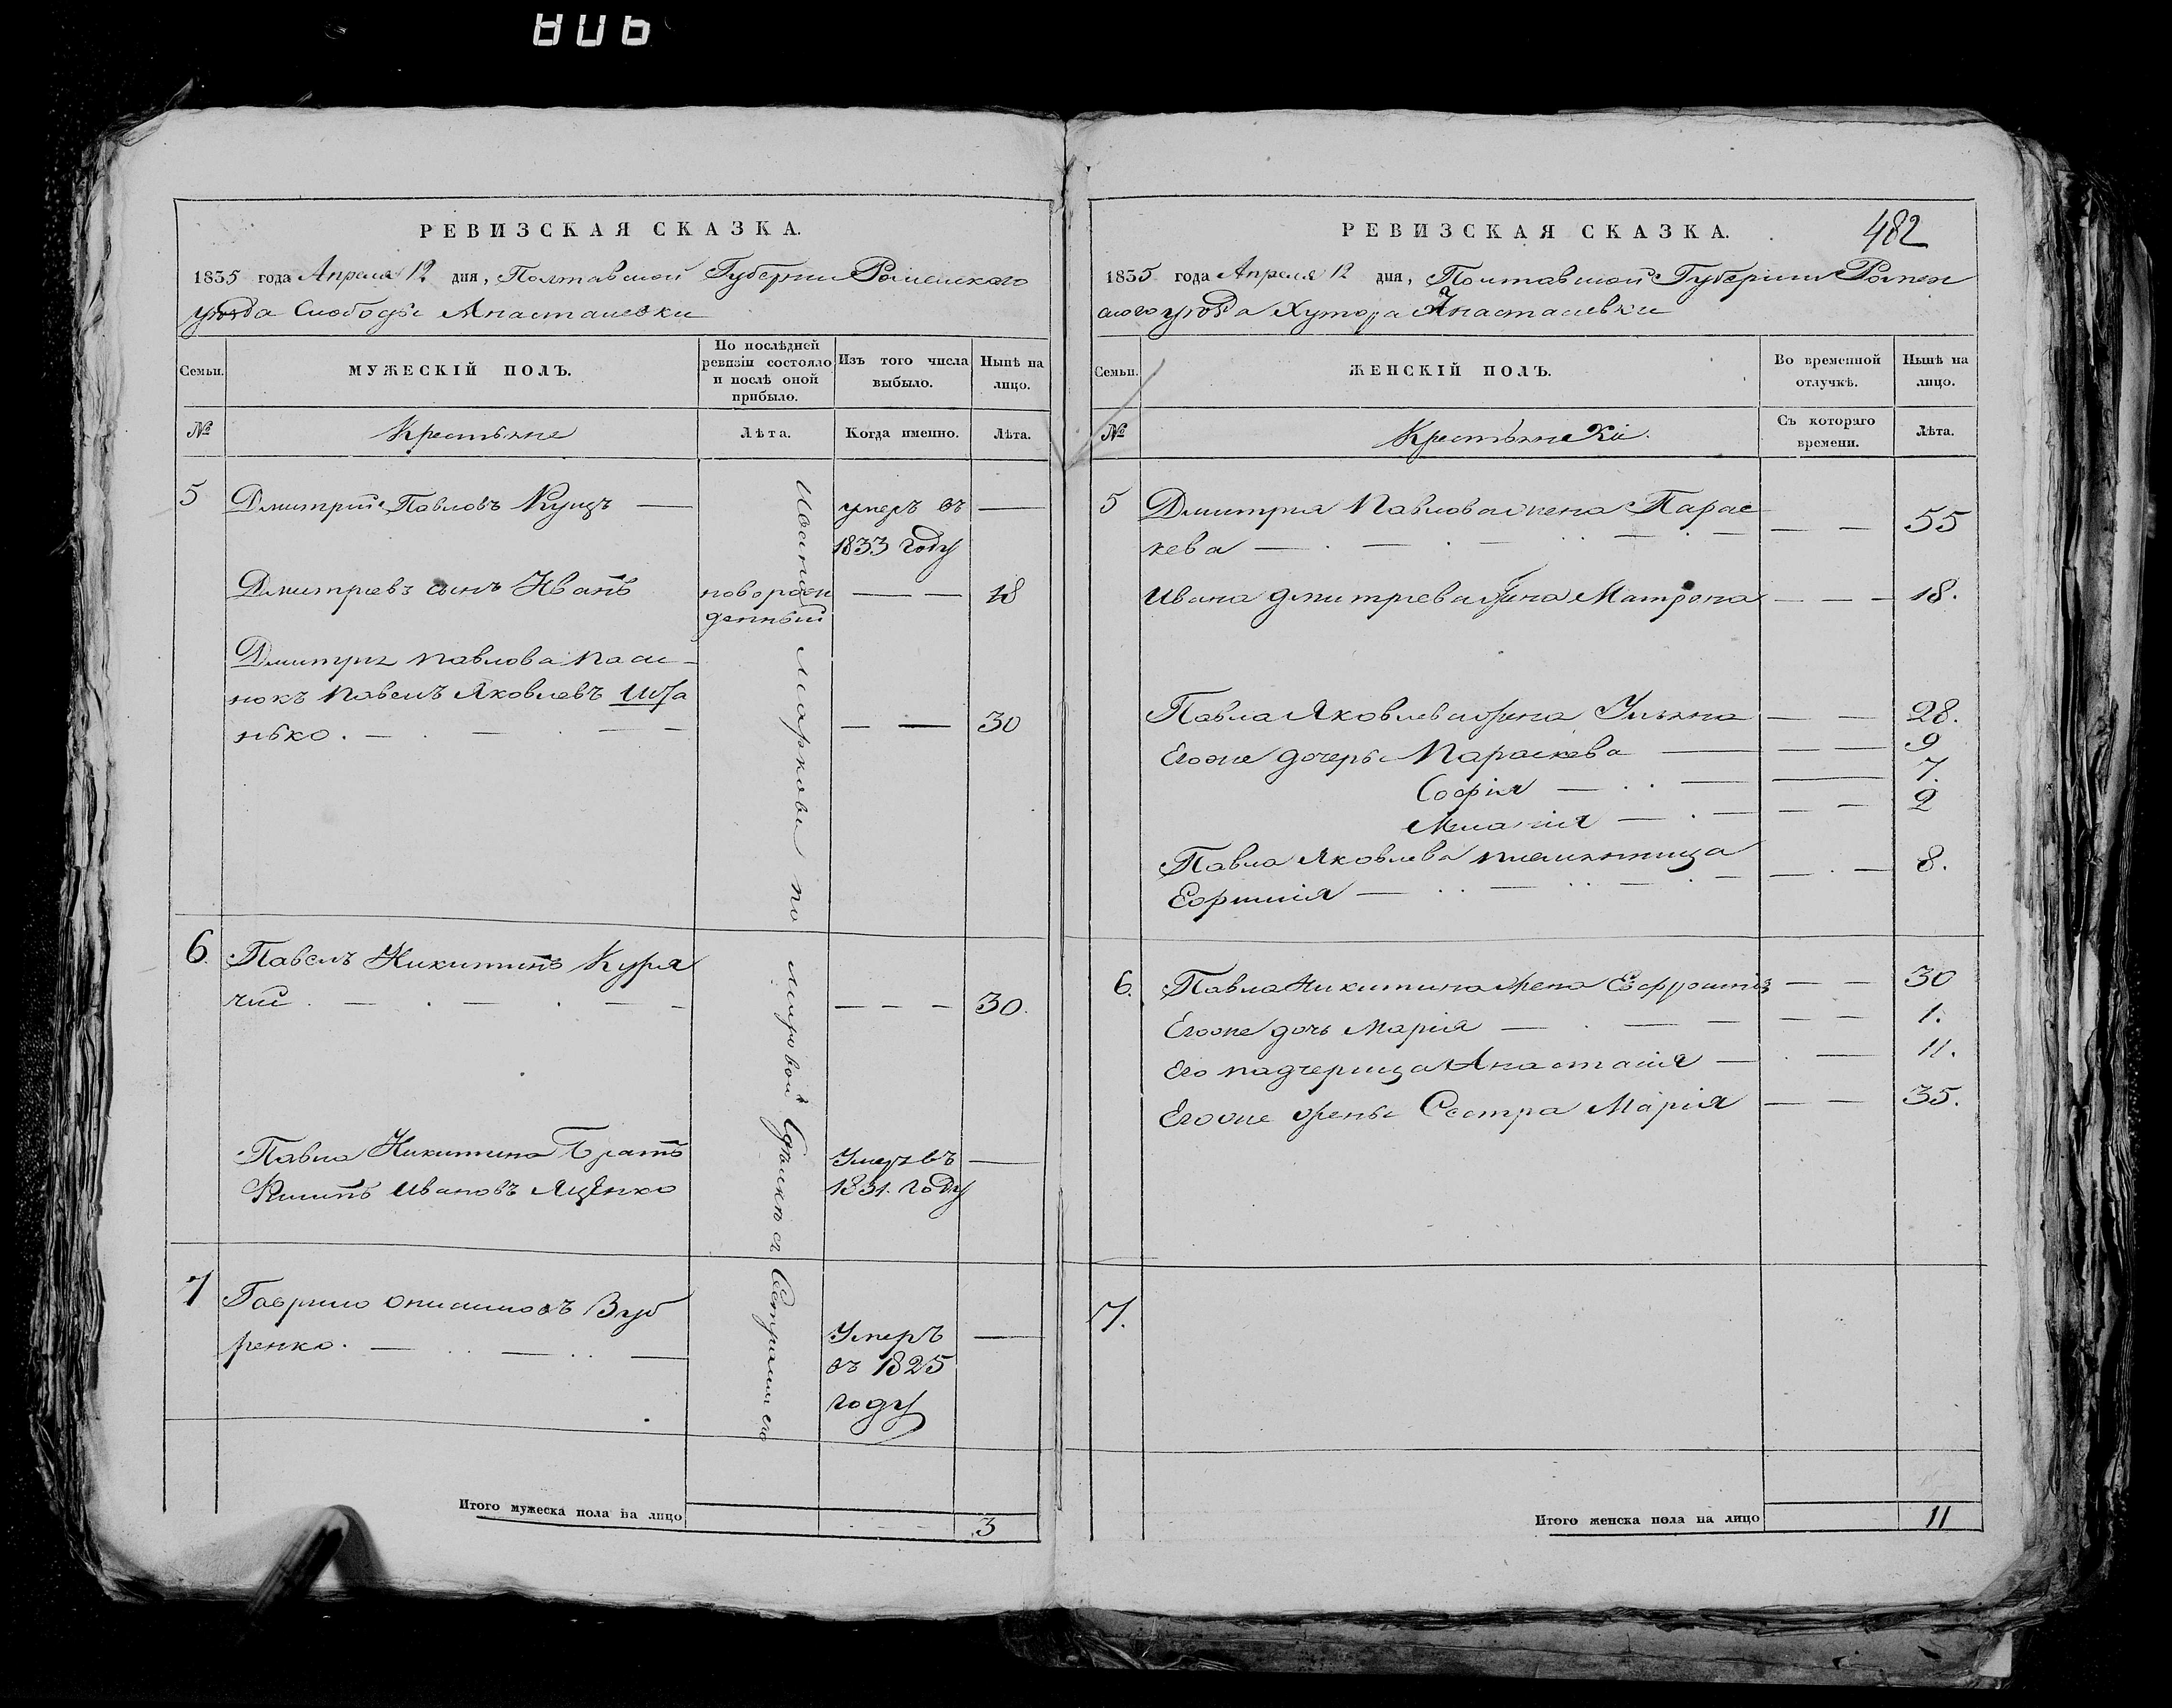 806
РЕВИЗСКАЯ СКАЗКА.
1835 года Апреля 12 дня, Полтавской Губернии Роменского
уезда Слободы Анастасіевки
Семьи.
МУЖЕСКІЙ ПОЛЪ.
По послѣдней ревизіи состояло и послѣ оной прибыло.
Изъ того числа выбыло.
Нынѣ на лицо.
№
Крестьяне
Лѣта.
Когда именно.
Лѣта.
5 Дмитрій Павловъ Куцъ — умеръ въ —
1833 году
Дмитріевъ сынъ Иванъ новорож — — 18
денный
Дмитрія Павлова пасы-
нокъ Павелъ Яковлевъ
нько. — — 30
6. Павелъ Никитинъ Куря
чій — — — 30.
Павла Никитина Братъ Умеръ въ —
Ивановъ Яценко 1831. году
7 Гаврило Онисимовъ Зуб
ренко. Умеръ —
въ 1825
году
Ивана Маркова по мировой Сделки съ его
Итого мужеска пола на лицо 3
РЕВИЗСКАЯ СКАЗКА.
482
1835 года Апреля 12 дня, Полтавской Губерніи Ромен
ского уезда Хутора Анастасіевки
Семьи.
ЖЕНСКІЙ ПОЛЪ.
Во временной отлучкѣ.
Нынѣ на лицо.
№
Крестьянскій.
Съ котораго времени.
Лѣта.
5 Дмитрія Павлова жена Парас
кева — — 55
Ивана Дмитріева жена Матрона — — — 18.
Павла Яковлева жена Ульяна — — 28.
Его же дочери Параскева — — — 9
Софія — 7.
Меланія — — — 2
Павла Яковлева племянница
— — 8.
6. Павла Никитина жена — — 30
Его же дочь Марія — — — 1.
Его падчерица Анастасія — — 11.
Его же жены Сестра Марія — — 35.
7.
Итого женска пола на лицо 11